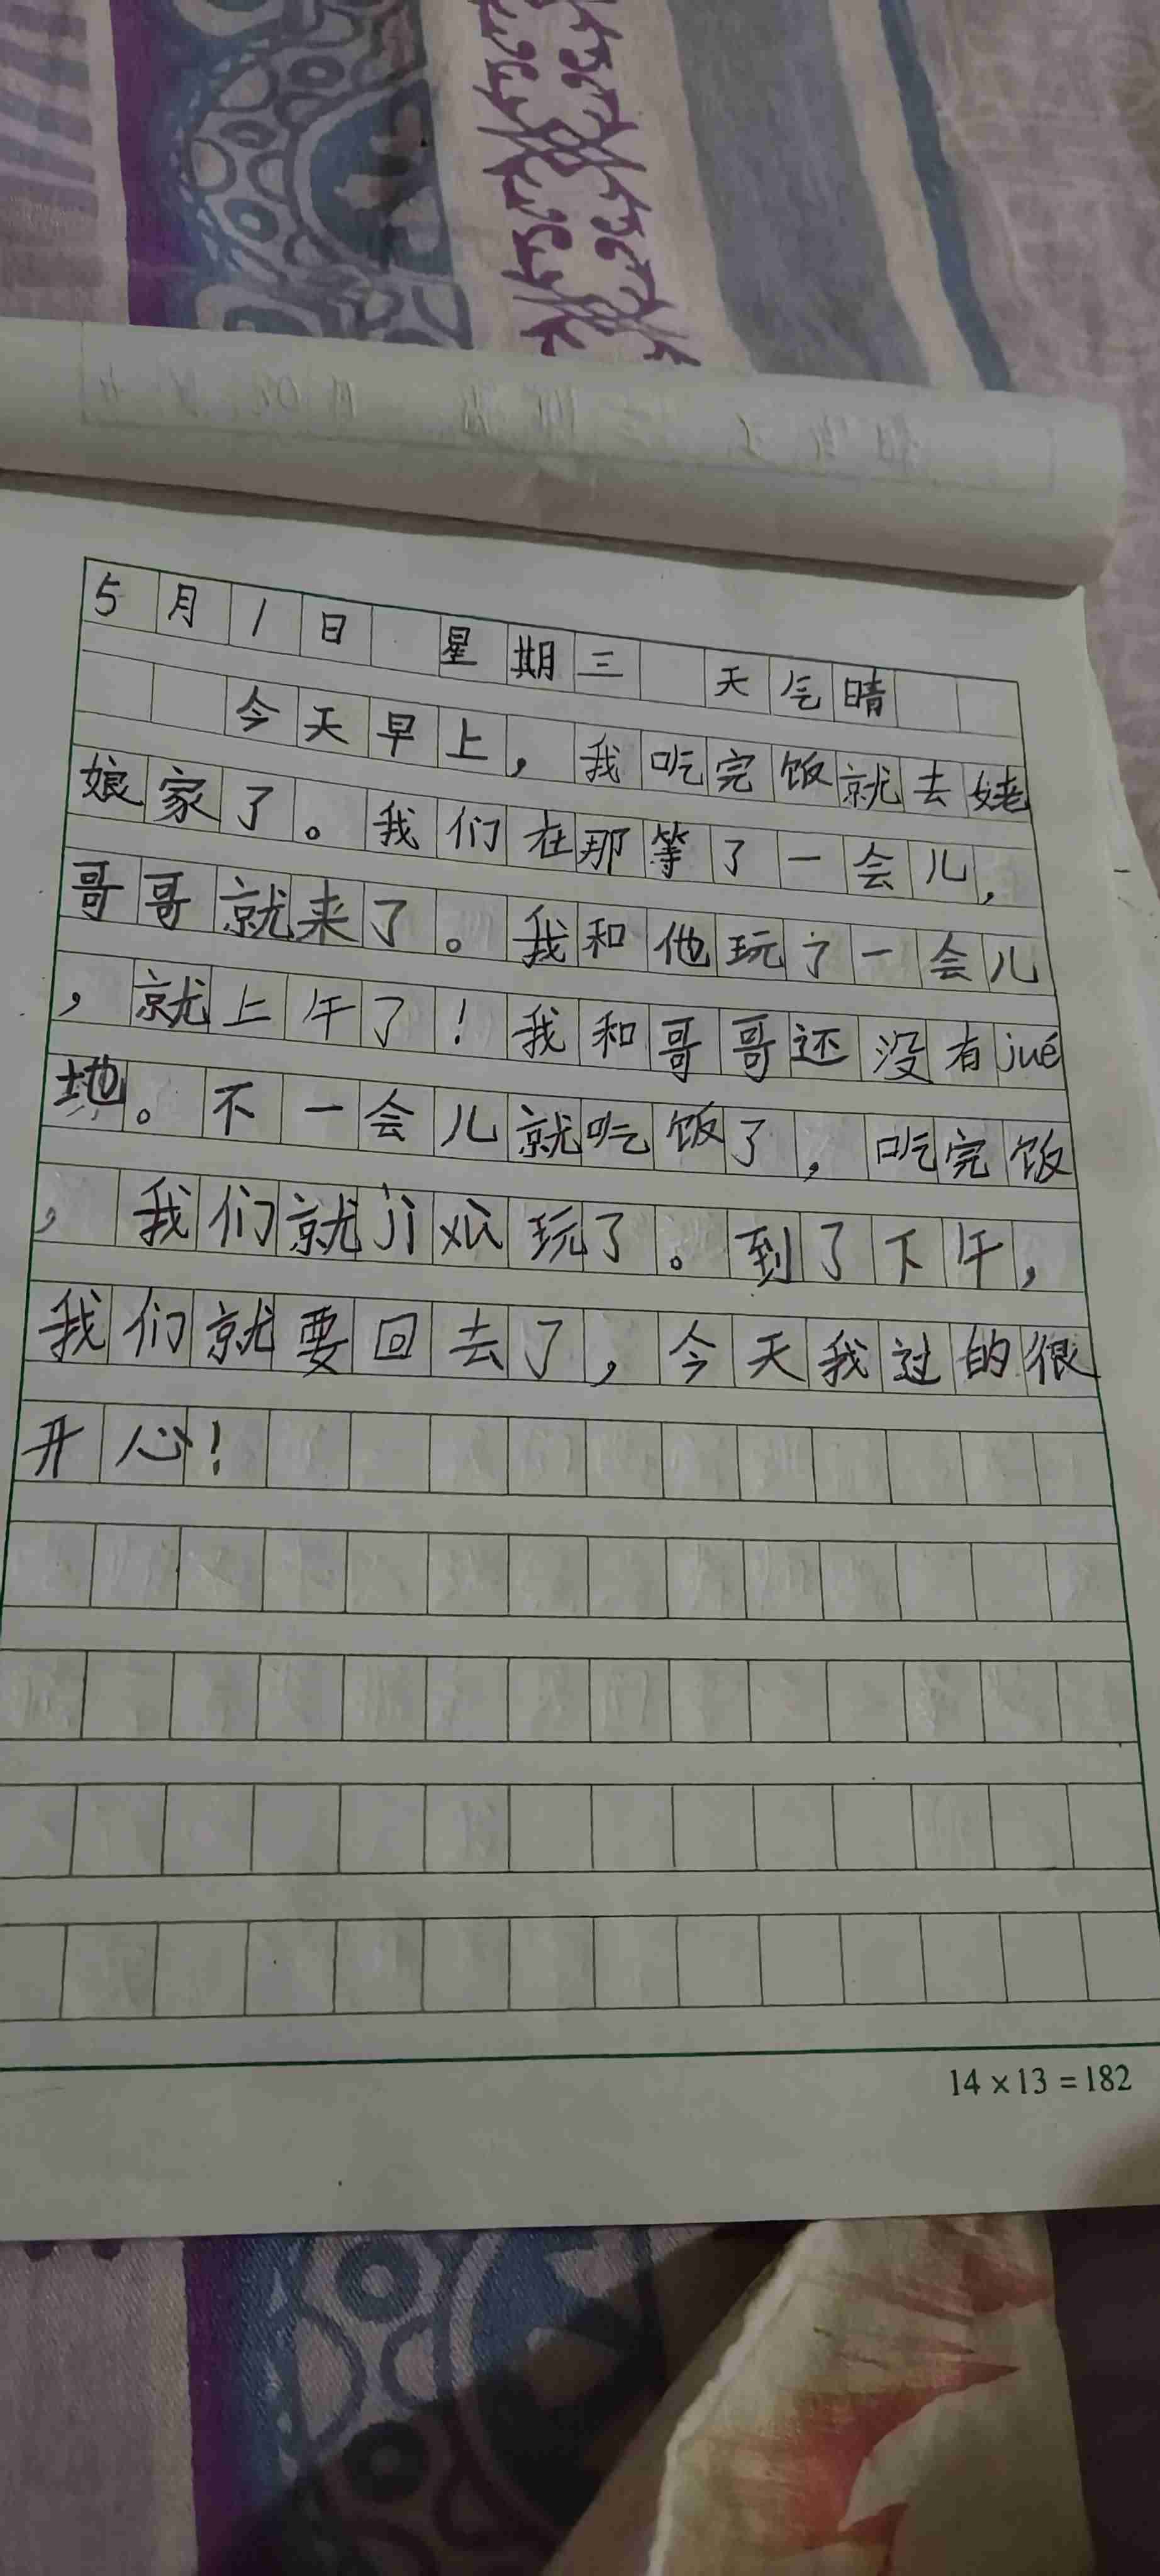 5月1日 星期三 天气晴
今天早上，我吃完饭就去姥
娘家了。我们在那等了一会儿，
哥哥就来了。我和他玩了一会儿
，就上午了！我和哥哥还没有jué
地。不一会儿就吃饭了，吃完饭
，我们就jì xù玩了。到了下午，
我们就要回去了，今天我过的很
开心！
14×13=182